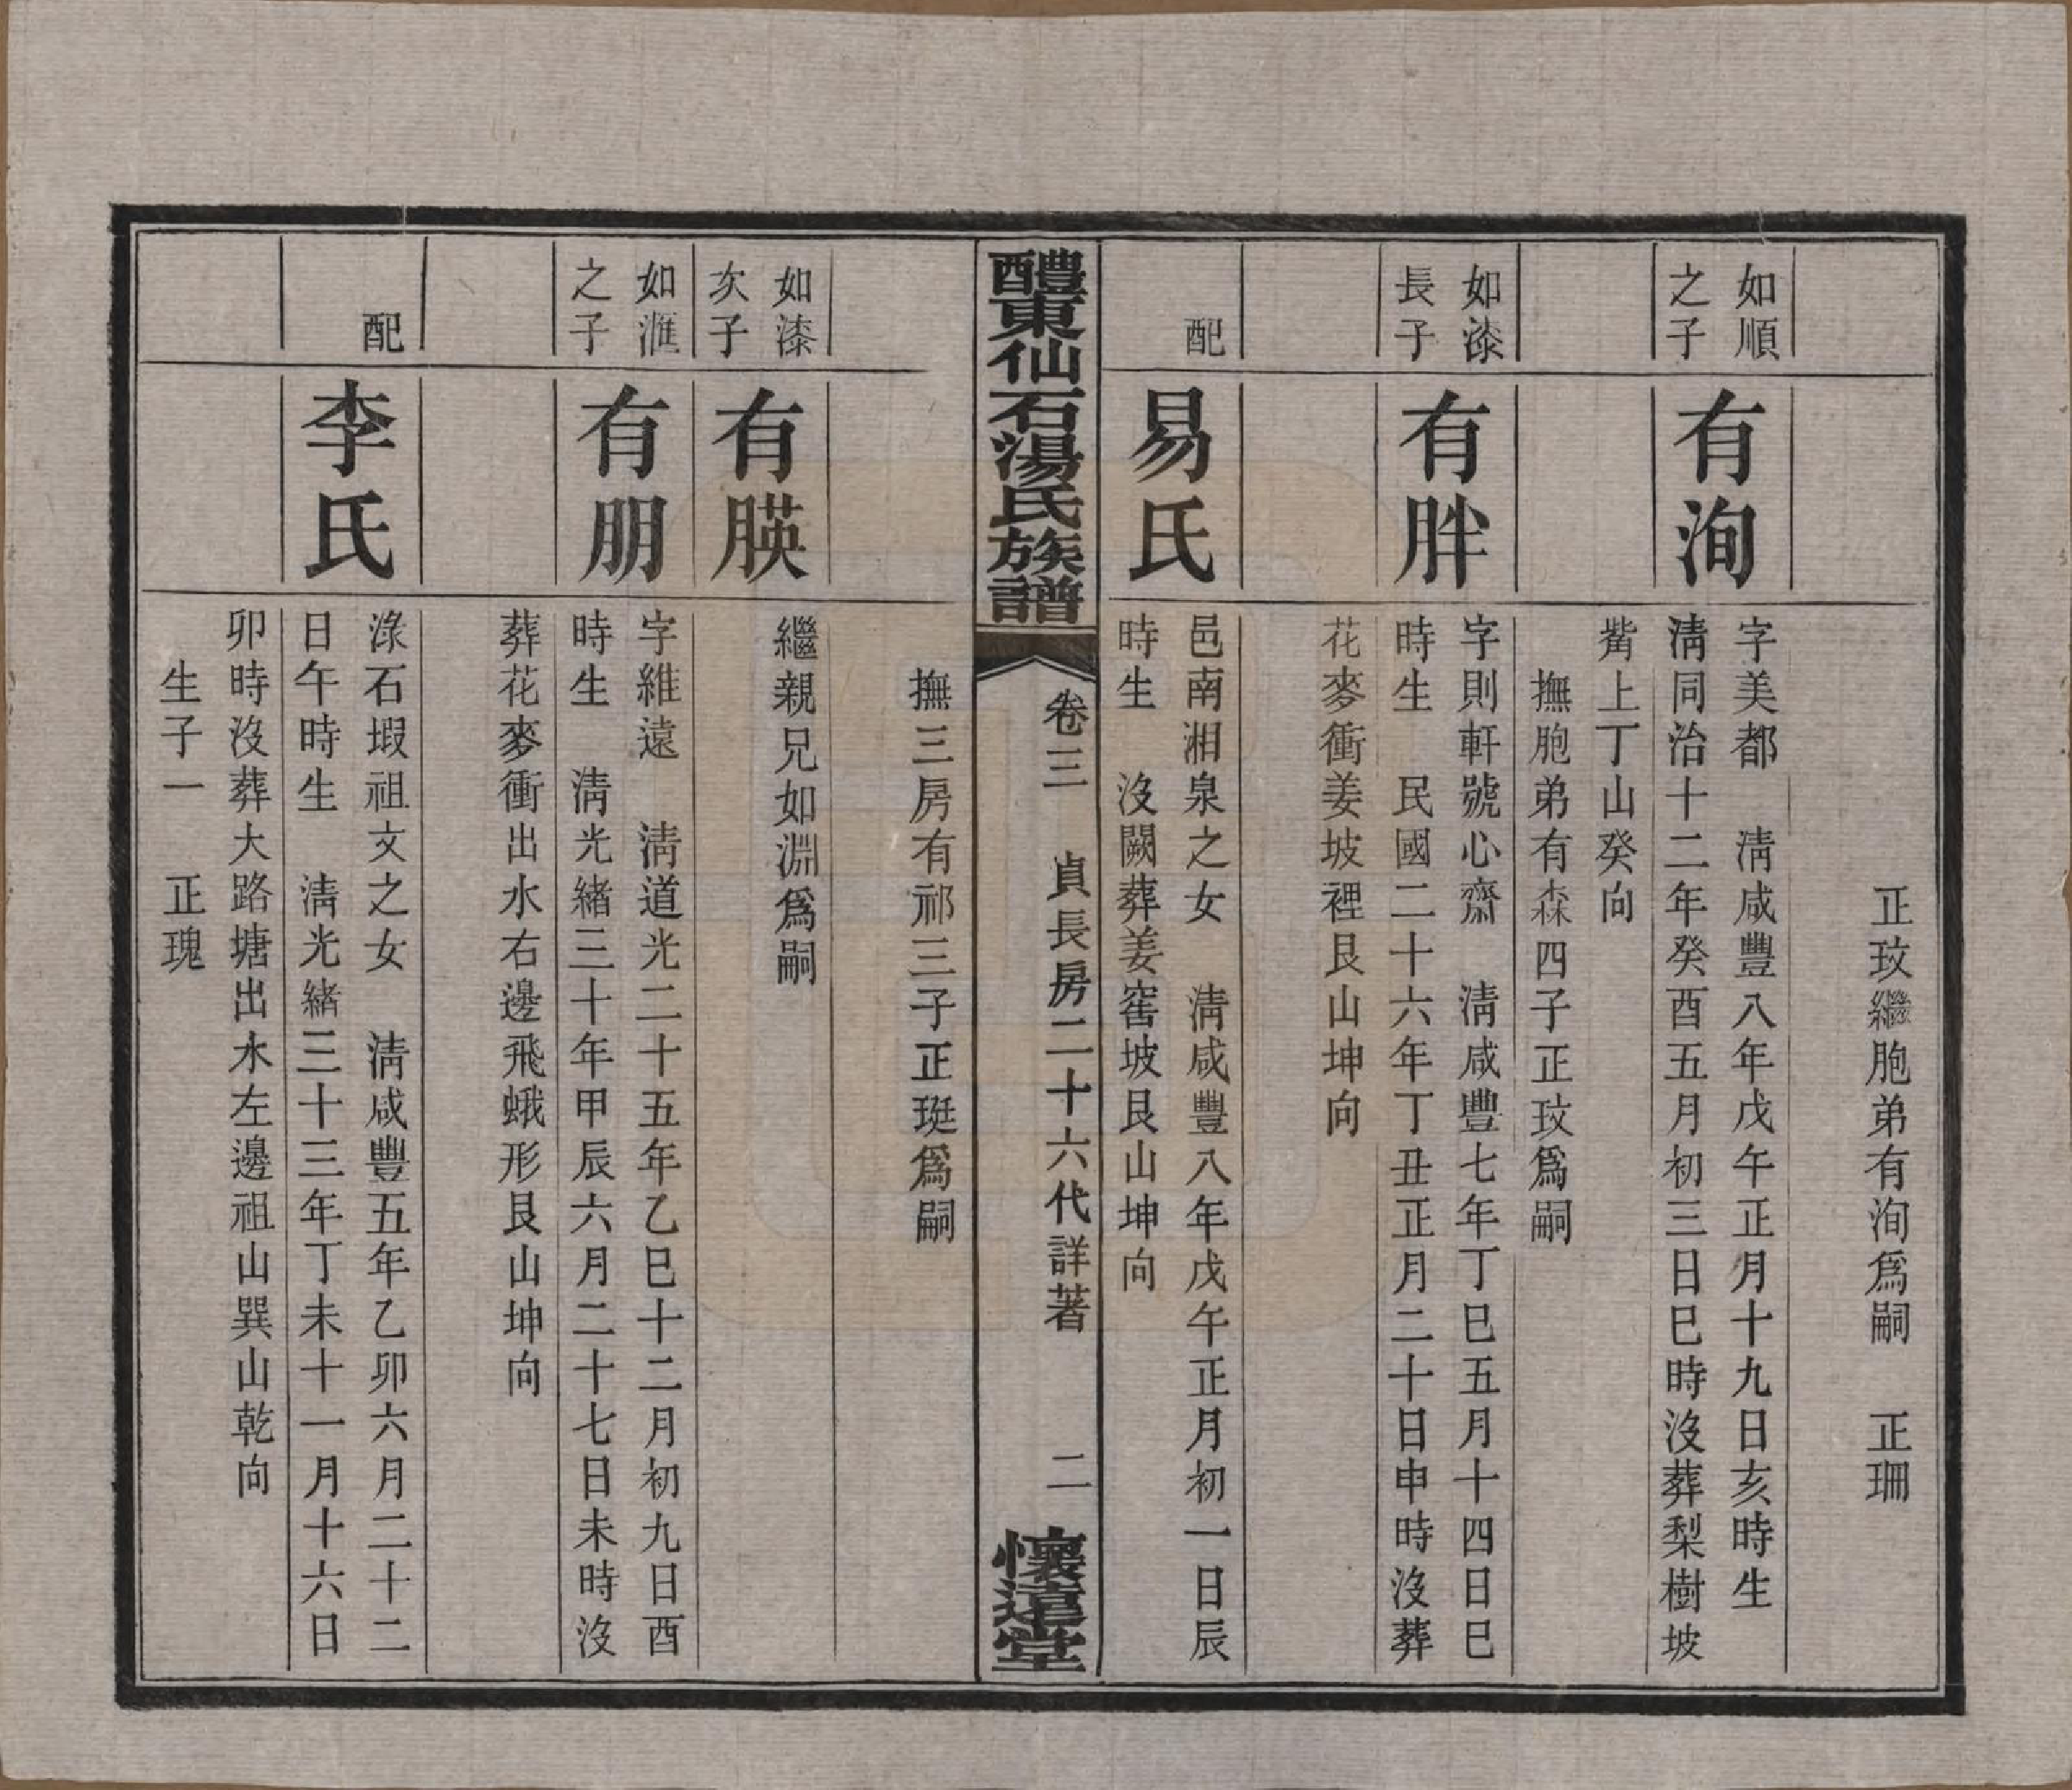 正玟繼胞弟有洵爲嗣　正珊
如順
之子
有洵
字美都　淸咸豐八年戊午正月十九日亥時生
淸同治十二年癸酉五月初三日巳時沒葬梨樹坡
觜上丁山癸向
撫胞弟有森四子正玟爲嗣
如漆
長子
有胖
字則軒號心齋　淸咸豐七年丁巳五月十四日巳
時生　民國二十六年丁丑正月二十日申時沒葬
花麥衝姜坡裡艮山坤向
配
易氏
邑南湘泉之女　淸咸豐八年戊午正月初一日辰
時生　沒闕葬姜窖坡艮山坤向
醴東仙石湯氏族譜
卷三　貞長房二十六代詳著　二
懷遠堂
撫三房有祁三子正珽爲嗣
如漆
次子
有䐥
繼親兄如淵爲嗣
如滙
之子
有朋
字維遠　淸道光二十五年乙巳十二月初九日酉
時生　淸光緖三十年甲辰六月二十七日未時沒
葬花麥衝出水右邊飛蛾形艮山坤向
配
李氏
淥石塅祖文之女　淸咸豐五年乙卯六月二十二
日午時生　淸光緖三十三年丁未十一月十六日
卯時沒葬大路塘出水左邊祖山巽山乾向
生子一　正瑰